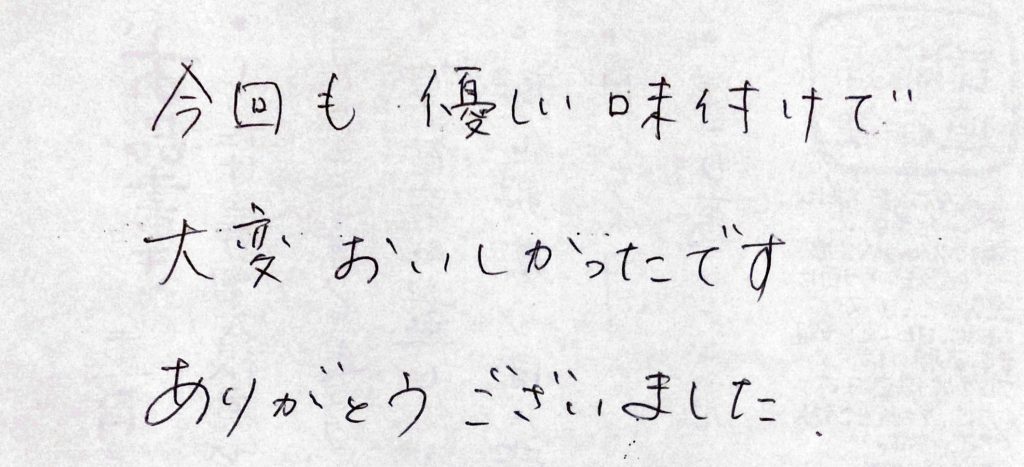 今回も優しい味付けで
大変おいしかったです
ありがとうございました.